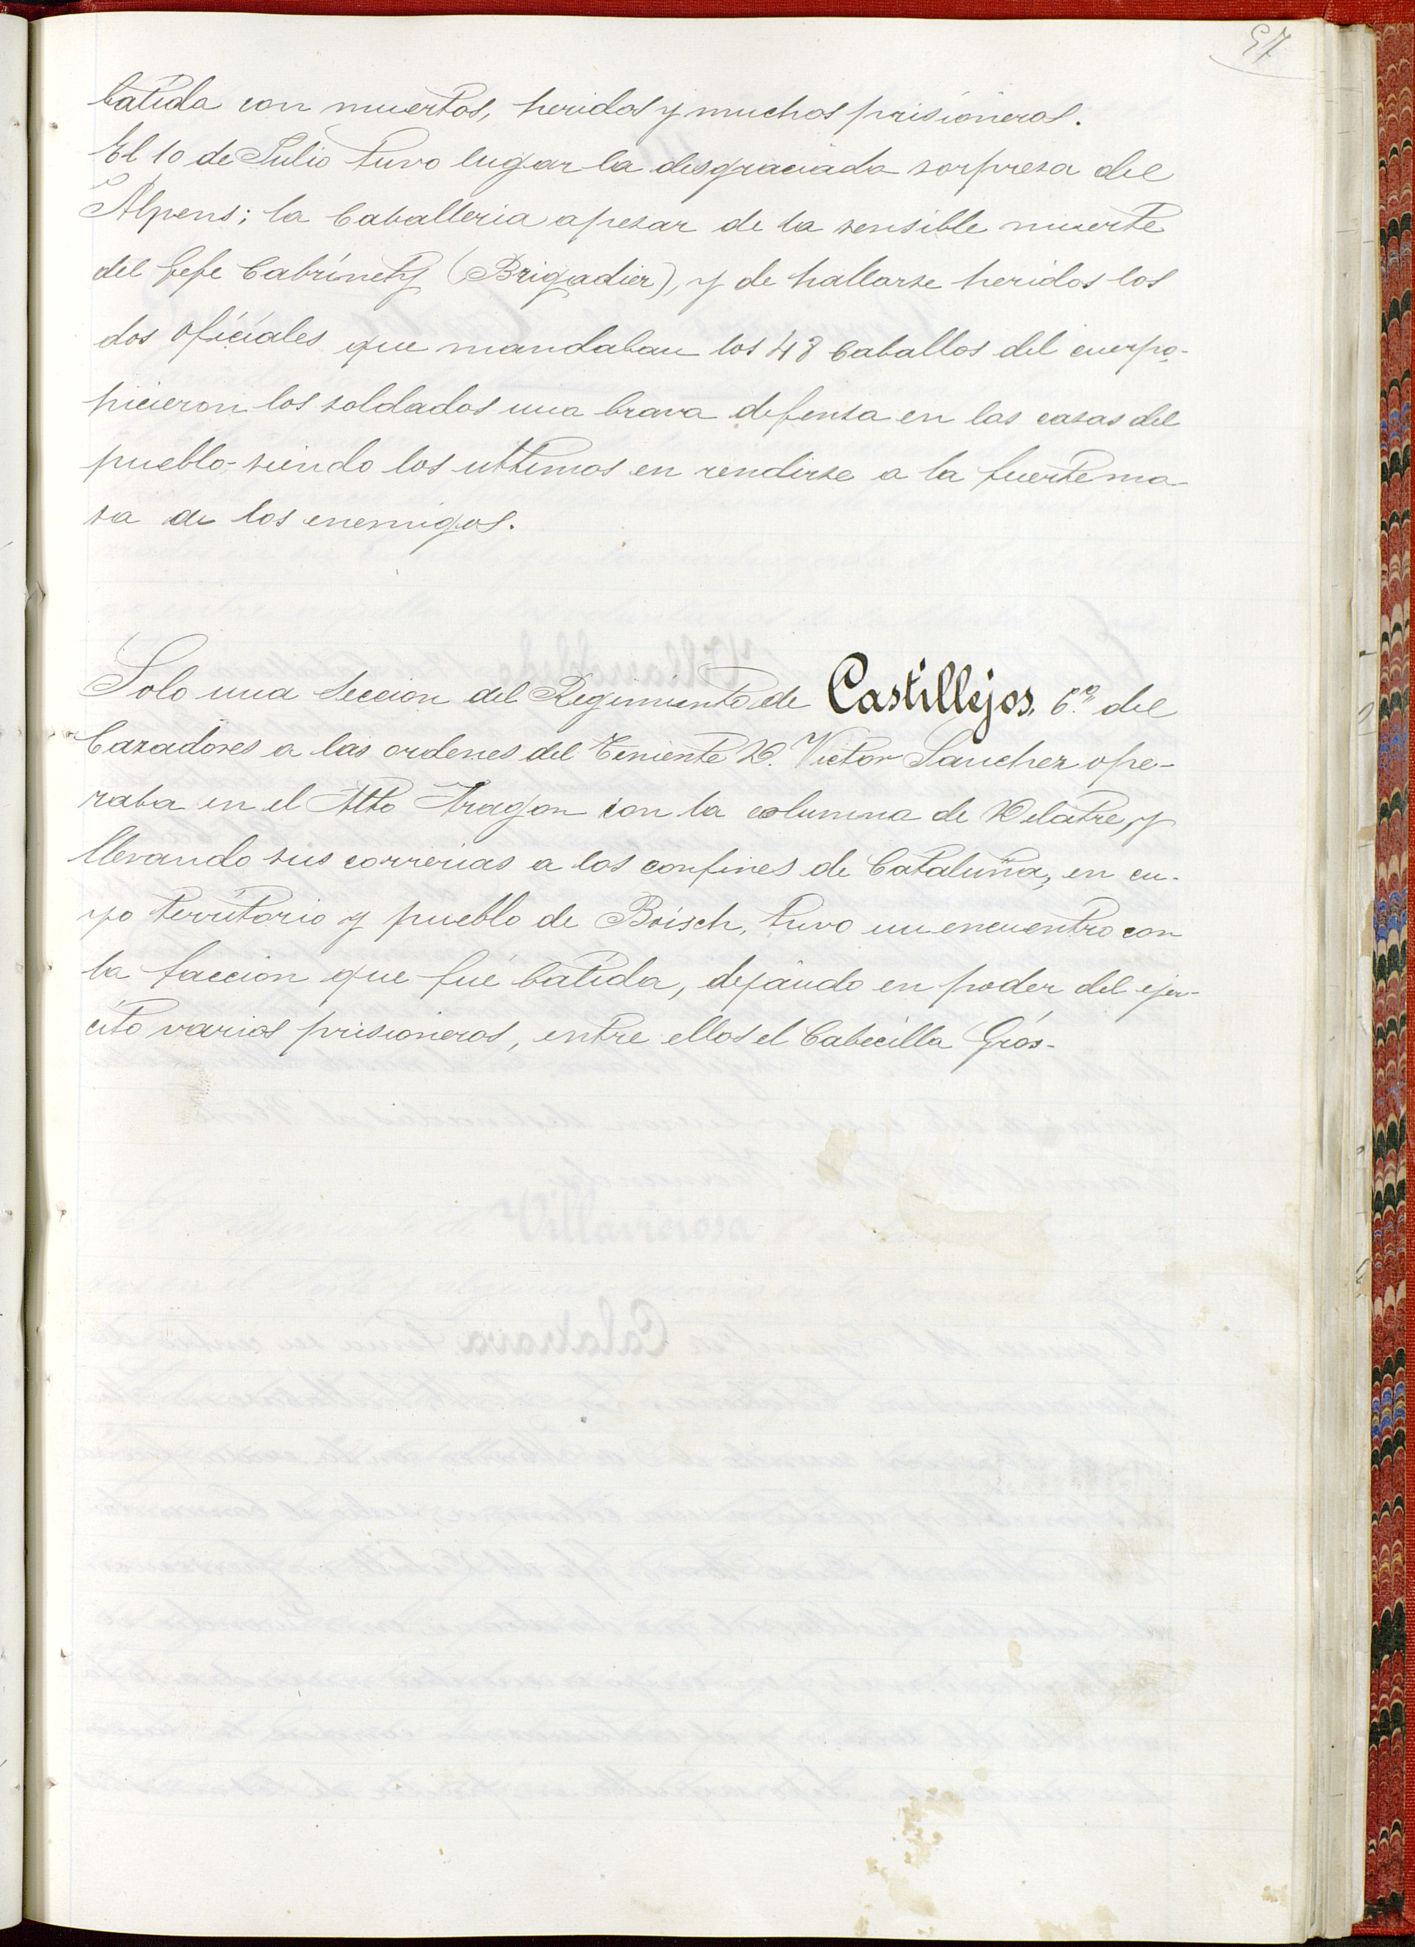 97
batida con muertos, heridos y muchos prisioneros.
El 10 de Julio tuvo lugar la desgraciada sorpresa del
Alpens; la Caballeria apesar de la sensible muerte
del Gefe Cabrinety (Brigadier), y de hallarse heridos los
dos oficiales que mandaban los 48 caballos del cuerpo-
hicieron los soldados una brava defensa en las casas del
pueblo-siendo los ultimos en rendirse a la fuerte ma-
sa de los enemigos.
Solo una Seccion del Regimiento de Castillejos, 6º del
Cazadores a las ordenes del Teniente D. Victor Sanchez ope-
raba en el Alto Aragon con la columna de Delatre, y
llevando sus correrias a los confines de Cataluña, en cu-
yo territorio y pueblo de Boisch, tuvo un encuentro con
la faccion que fué batida, dejando en poder del ejer-
cito varios prisioneros, entre ellos el Cabecilla Grós-